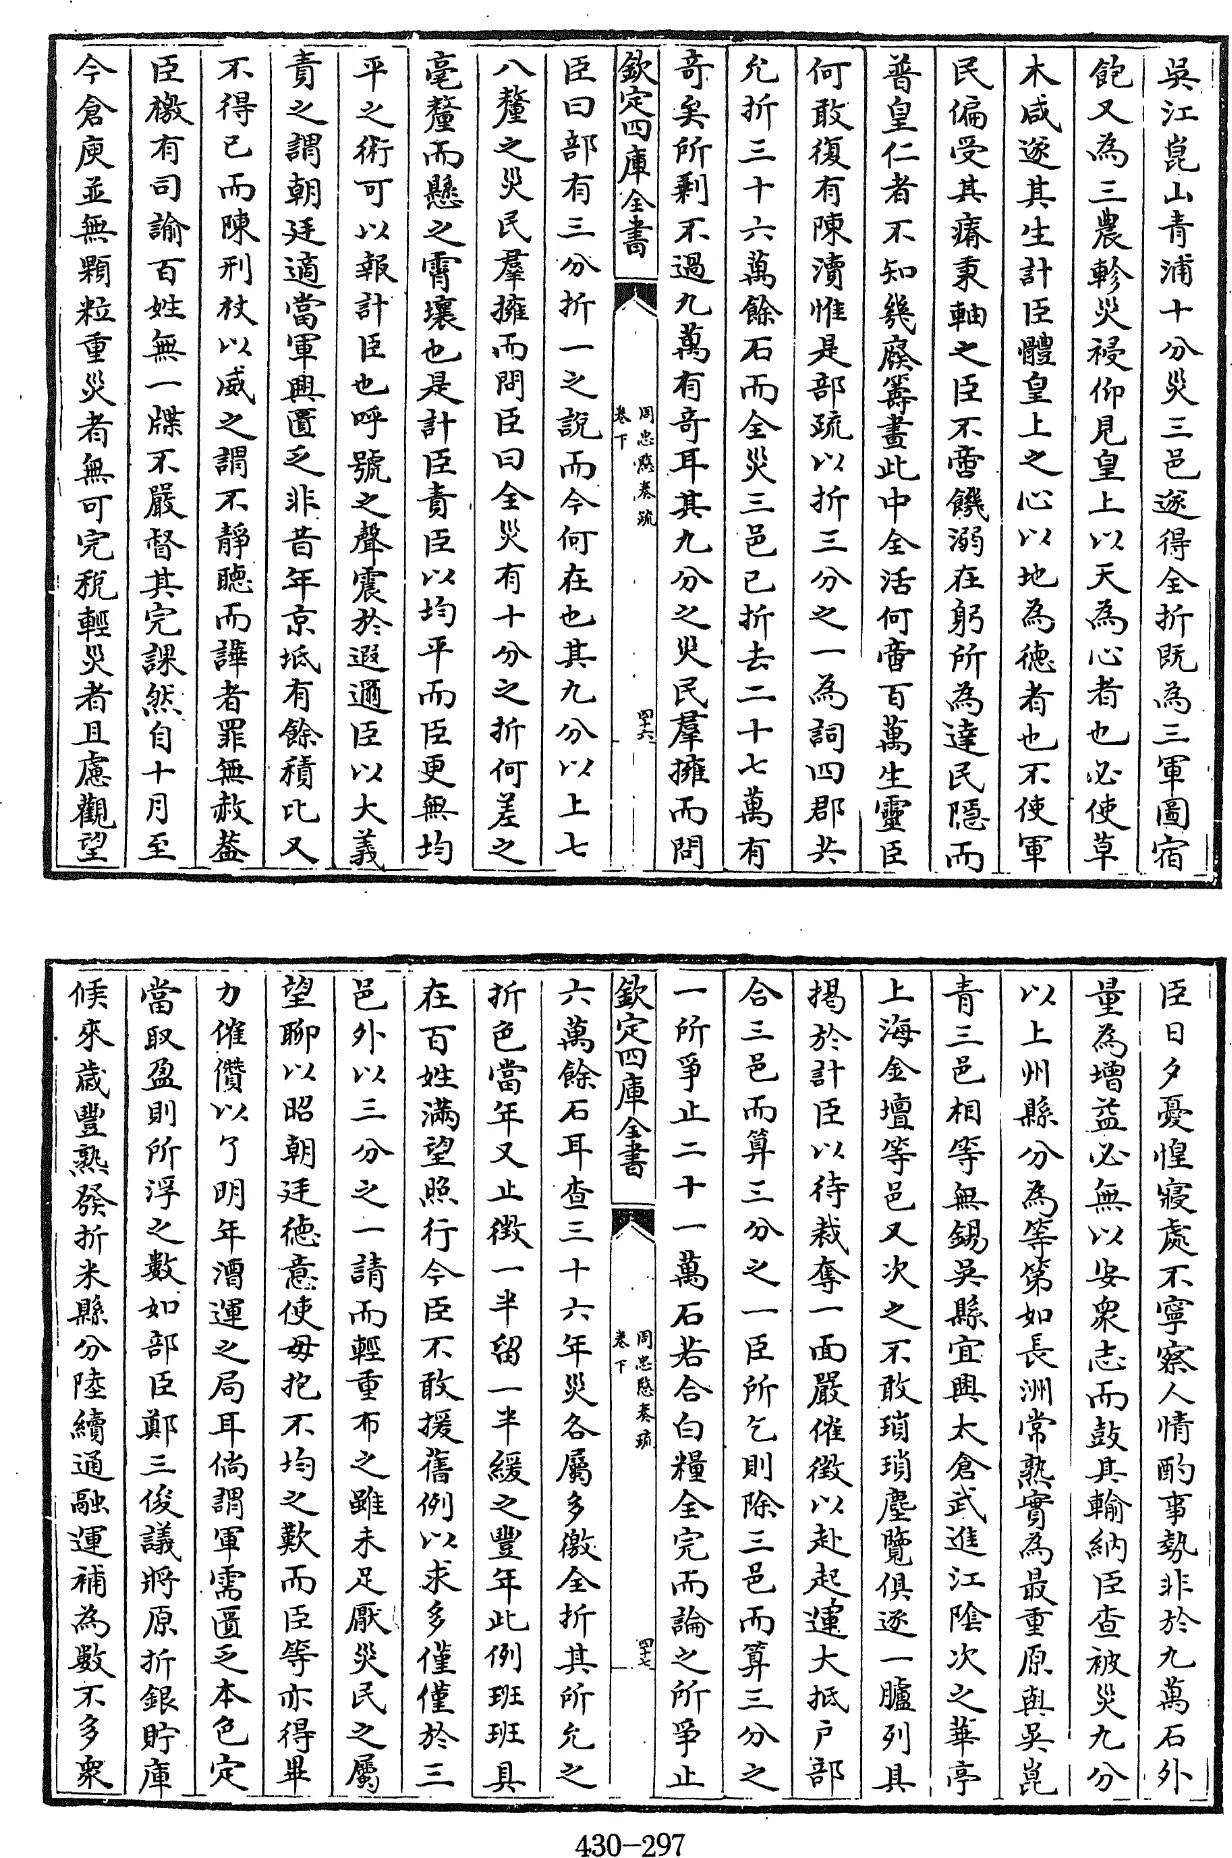 吳江崑山青浦十分災三邑遂得全折既為三軍圖宿
飽又為三農軫災祲仰見皇上以天為心者也必使草
木咸遂其生計臣體皇上之心以地為德者也不使軍
民偏受其瘠秉軸之臣不啻饑溺在躬所為達民隱而
普皇仁者不知幾廢籌畫此中全活何啻百萬生靈臣
何敢復有陳瀆惟是部疏以折三分之一為詞四郡共
允折三十六萬餘石而全災三邑已折去二十七萬有
奇矣所剩不過九萬有奇耳其九分之災民羣擁而問
欽定四庫全書
周忠愍奏疏
卷下
四十六
臣曰部有三分折一之說而今何在也其九分以上七
八釐之災民羣擁而問臣曰全災有十分之折何差之
毫釐而懸之霄壤也是計臣責臣以均平而臣更無均
平之術可以報計臣也呼號之聲震於遐邇臣以大義
責之謂朝廷適當軍興匱乏非昔年京坻有餘積比又
不得已而陳刑杖以威之謂不靜聽而譁者罪無赦葢
臣檄有司諭百姓無一牒不嚴督其完課然自十月至
今倉庾並無顆粒重災者無可完稅輕災者且慮觀望
臣日夕憂惶寢處不寧察人情酌事勢非於九萬石外
量為增益必無以安衆志而鼓其輸納臣查被災九分
以上州縣分為等第如長洲常熟實為最重原與吳崑
青三邑相等無錫吳縣宜興太倉武進江陰次之華亭
上海金壇等邑又次之不敢瑣瑣塵覽俱逐一臚列具
揭於計臣以待裁奪一面嚴催徵以赴起運大抵戶部
合三邑而算三分之一臣所乞則除三邑而算三分之
一所爭止二十一萬石若合白糧全完而論之所爭止
欽定四庫全書
周忠愍奏疏
卷下
四十七
六萬餘石耳查三十六年災各屬多徼全折其所允之
折色當年又止徵一半留一半緩之豐年此例班班具
在百姓滿望照行今臣不敢援舊例以求多僅僅於三
邑外以三分之一請而輕重布之雖未足厭災民之屬
望聊以昭朝廷德意使毋抱不均之歎而臣等亦得畢
力催儹以了明年漕運之局耳倘謂軍需匱乏本色定
當取盈則所浮之數如部臣鄭三俊議將原折銀貯庫
候來歲豐熟發折米縣分陸續通融運補為數不多衆
430-297